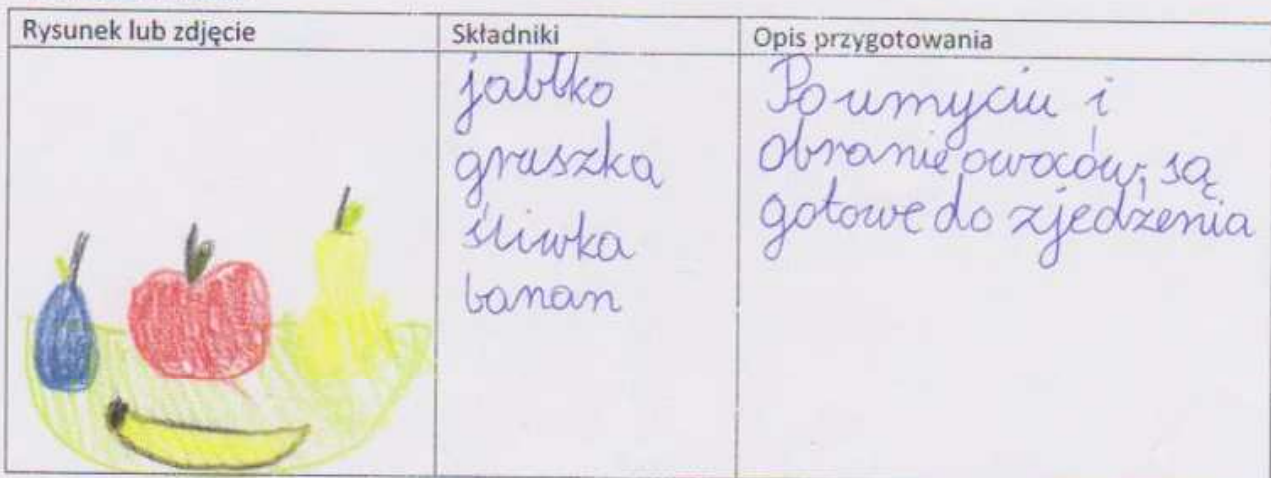 Rysunek lub zdjęcie
Składniki
Opis przygotowania
jabłko
gruszka
śliwka
banan
Po umyciu i
obranie owoców, są
gotowe do zjedzenia